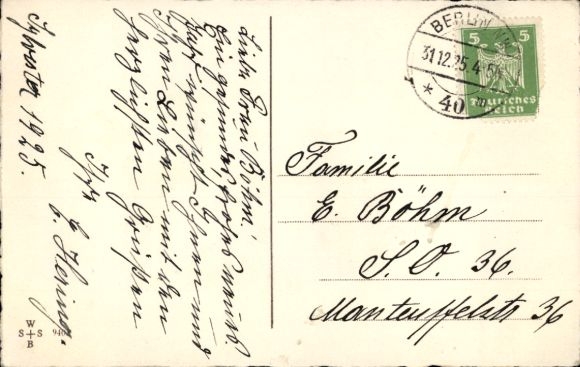 Sylvester 1925.
Liebe Frau Böhm!
Ein gesundes, frohes neues
Jahr wünscht Ihnen und
Ihren Lieben mit den
herzlichsten Grüßen
Ihr
E. Hering.
W
S + S
B
BERLIN
31.12.25.4-5
* 40
5 5
Deutsches
Reich
Familie
E. Böhm
S. O. 36.
Manteuffelstr 36